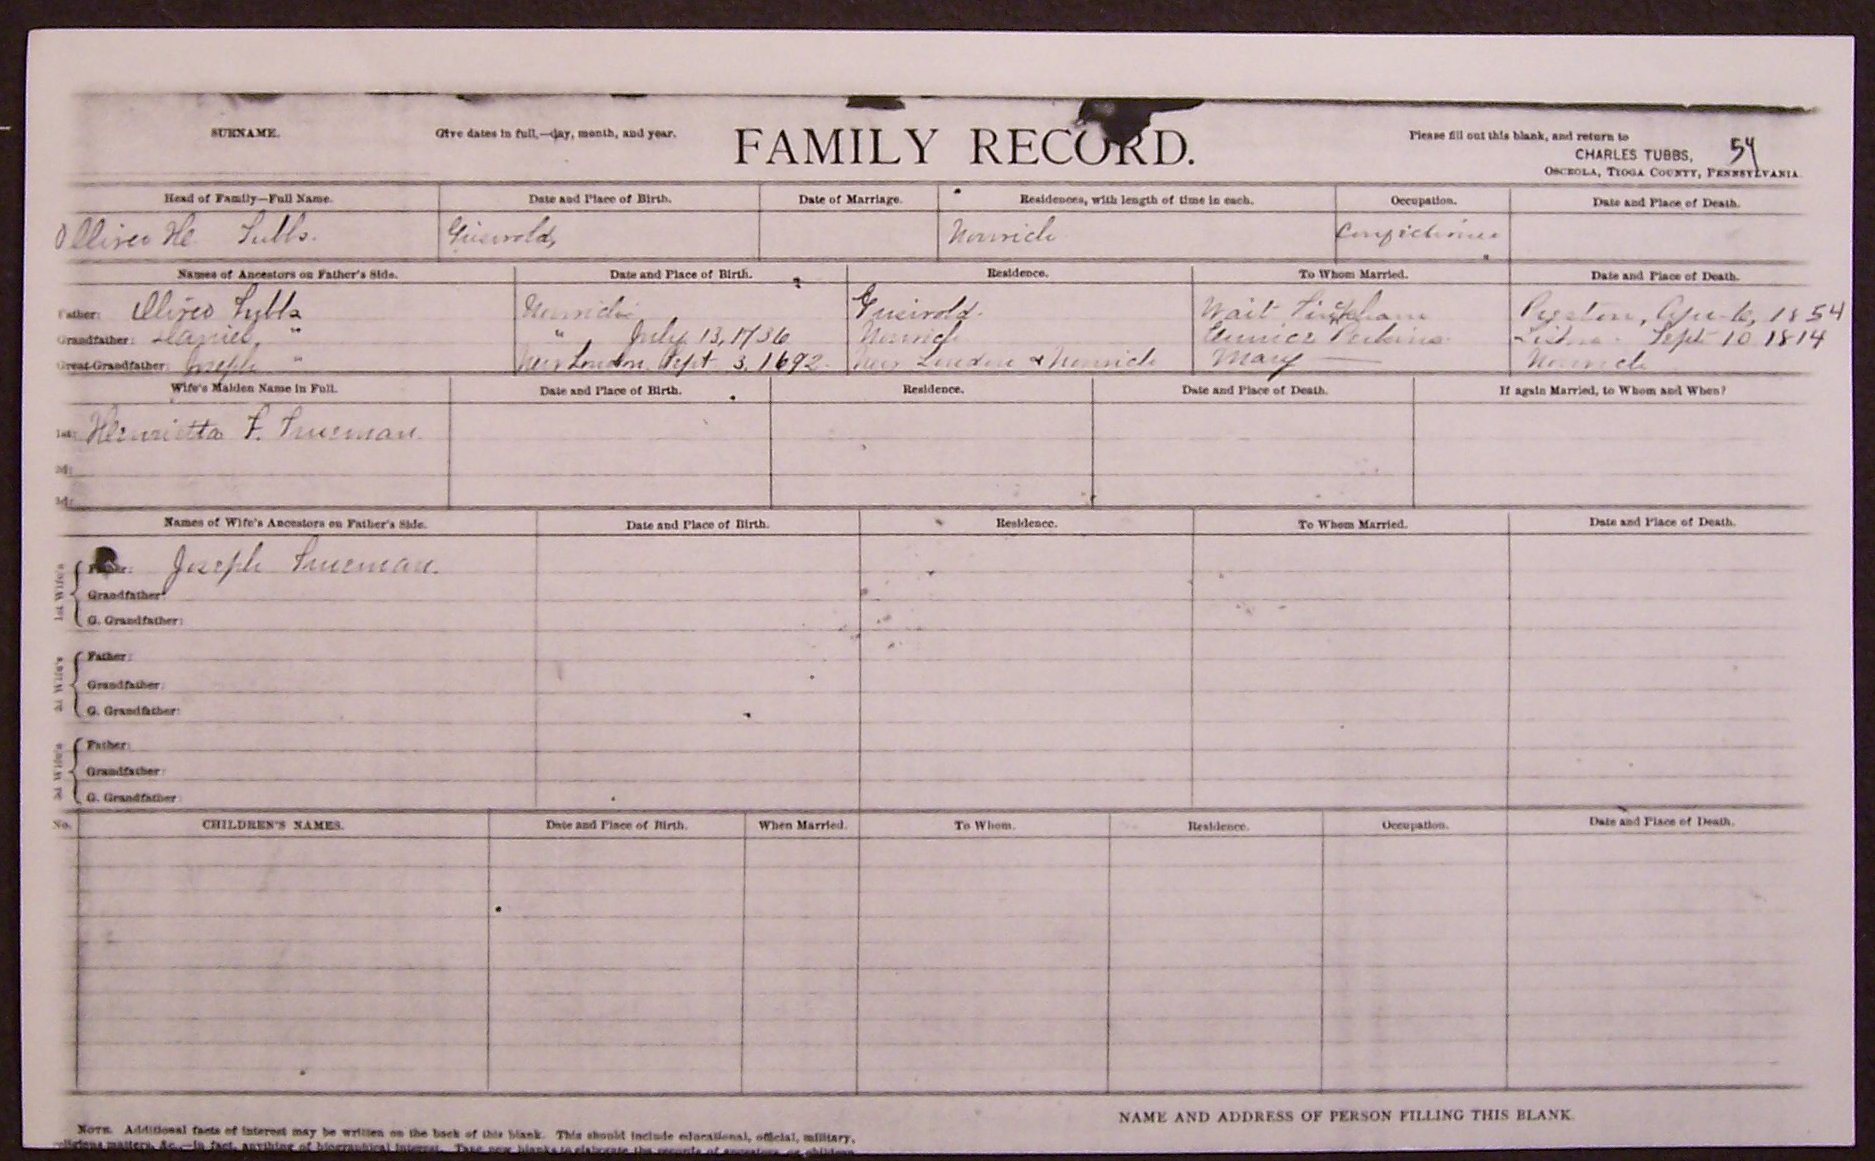 SURNAME. Give dates in full,—day, month, and year. FAMILY RECORD. Please fill out this blank, and return to
CHARLES TUBBS, 54
OSCEOLA, TIOGA COUNTY, PENNSYLVANIA.
Head of Family—Full Name. Date and Place of Birth. Date of Marriage. Residences, with length of time in each. Occupation. Date and Place of Death.
Oliver H. Tubbs. Griswold, Norwich Confectioner
Names of Ancestors on Father's Side. Date and Place of Birth. Residence. To Whom Married. Date and Place of Death.
Father: Oliver Tubbs Norwich Griswold. Wait Preston, Apr. 6, 1854
Grandfather: Daniel, " " July 13, 1736 Norwich Eunice Perkins Lisbon. Sept 10 1814
Great-Grandfather: Joseph " New London Sept 3, 1692. New London & Norwich Mary — Norwich
Wife's Maiden Name in Full. Date and Place of Birth. Residence. Date and Place of Death. If again Married, to Whom and When?
1st: Henrietta F. Trueman.
2d:
3d:
Names of Wife's Ancestors on Father's Side. Date and Place of Birth. Residence. To Whom Married. Date and Place of Death.
1st Wife's
Father: Joseph Trueman.
Grandfather:
G. Grandfather:
2d Wife's
Father:
Grandfather:
G. Grandfather:
3d Wife's
Father:
Grandfather:
G. Grandfather:
No. CHILDREN'S NAMES. Date and Place of Birth. When Married. To Whom. Residence. Occupation. Date and Place of Death.
NAME AND ADDRESS OF PERSON FILLING THIS BLANK.
NOTE. Additional facts of interest may be written on the back of this blank. This should include educational, official, military,
religious matters, &c.—in fact, anything of biographical interest. Take new blanks to elaborate the records of ancestors or children